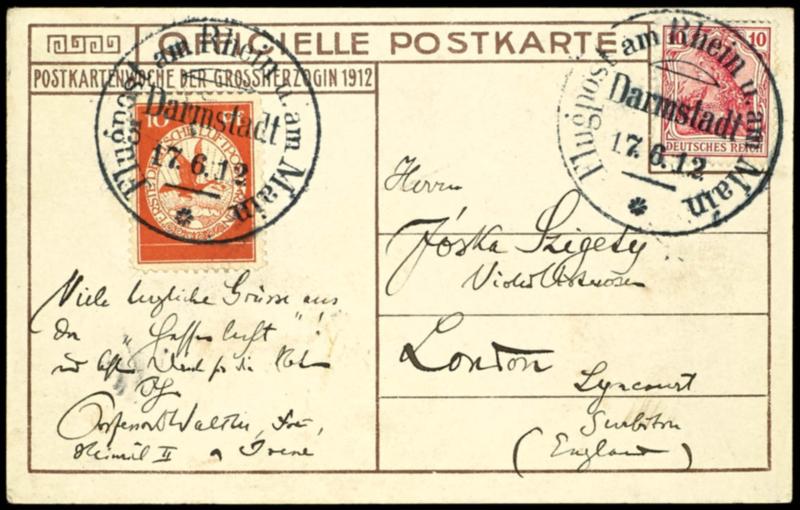 OFFIZIELLE POSTKARTE
POSTKARTENWOCHE DER GROSSHERZOGIN 1912
Flugpost am Rhein u. am Main
Darmstadt
17.6.12
10
Flugpost am Rhein u. am Main
Darmstadt
17.6.12
10 10
DEUTSCHES REICH
Herrn
Jóska Szigety
London
Lyncourt
Surbiton
(England)
Viele herzliche Grüsse aus
der
und für die
Professor Walter, Frau,
Heimil II u Irene